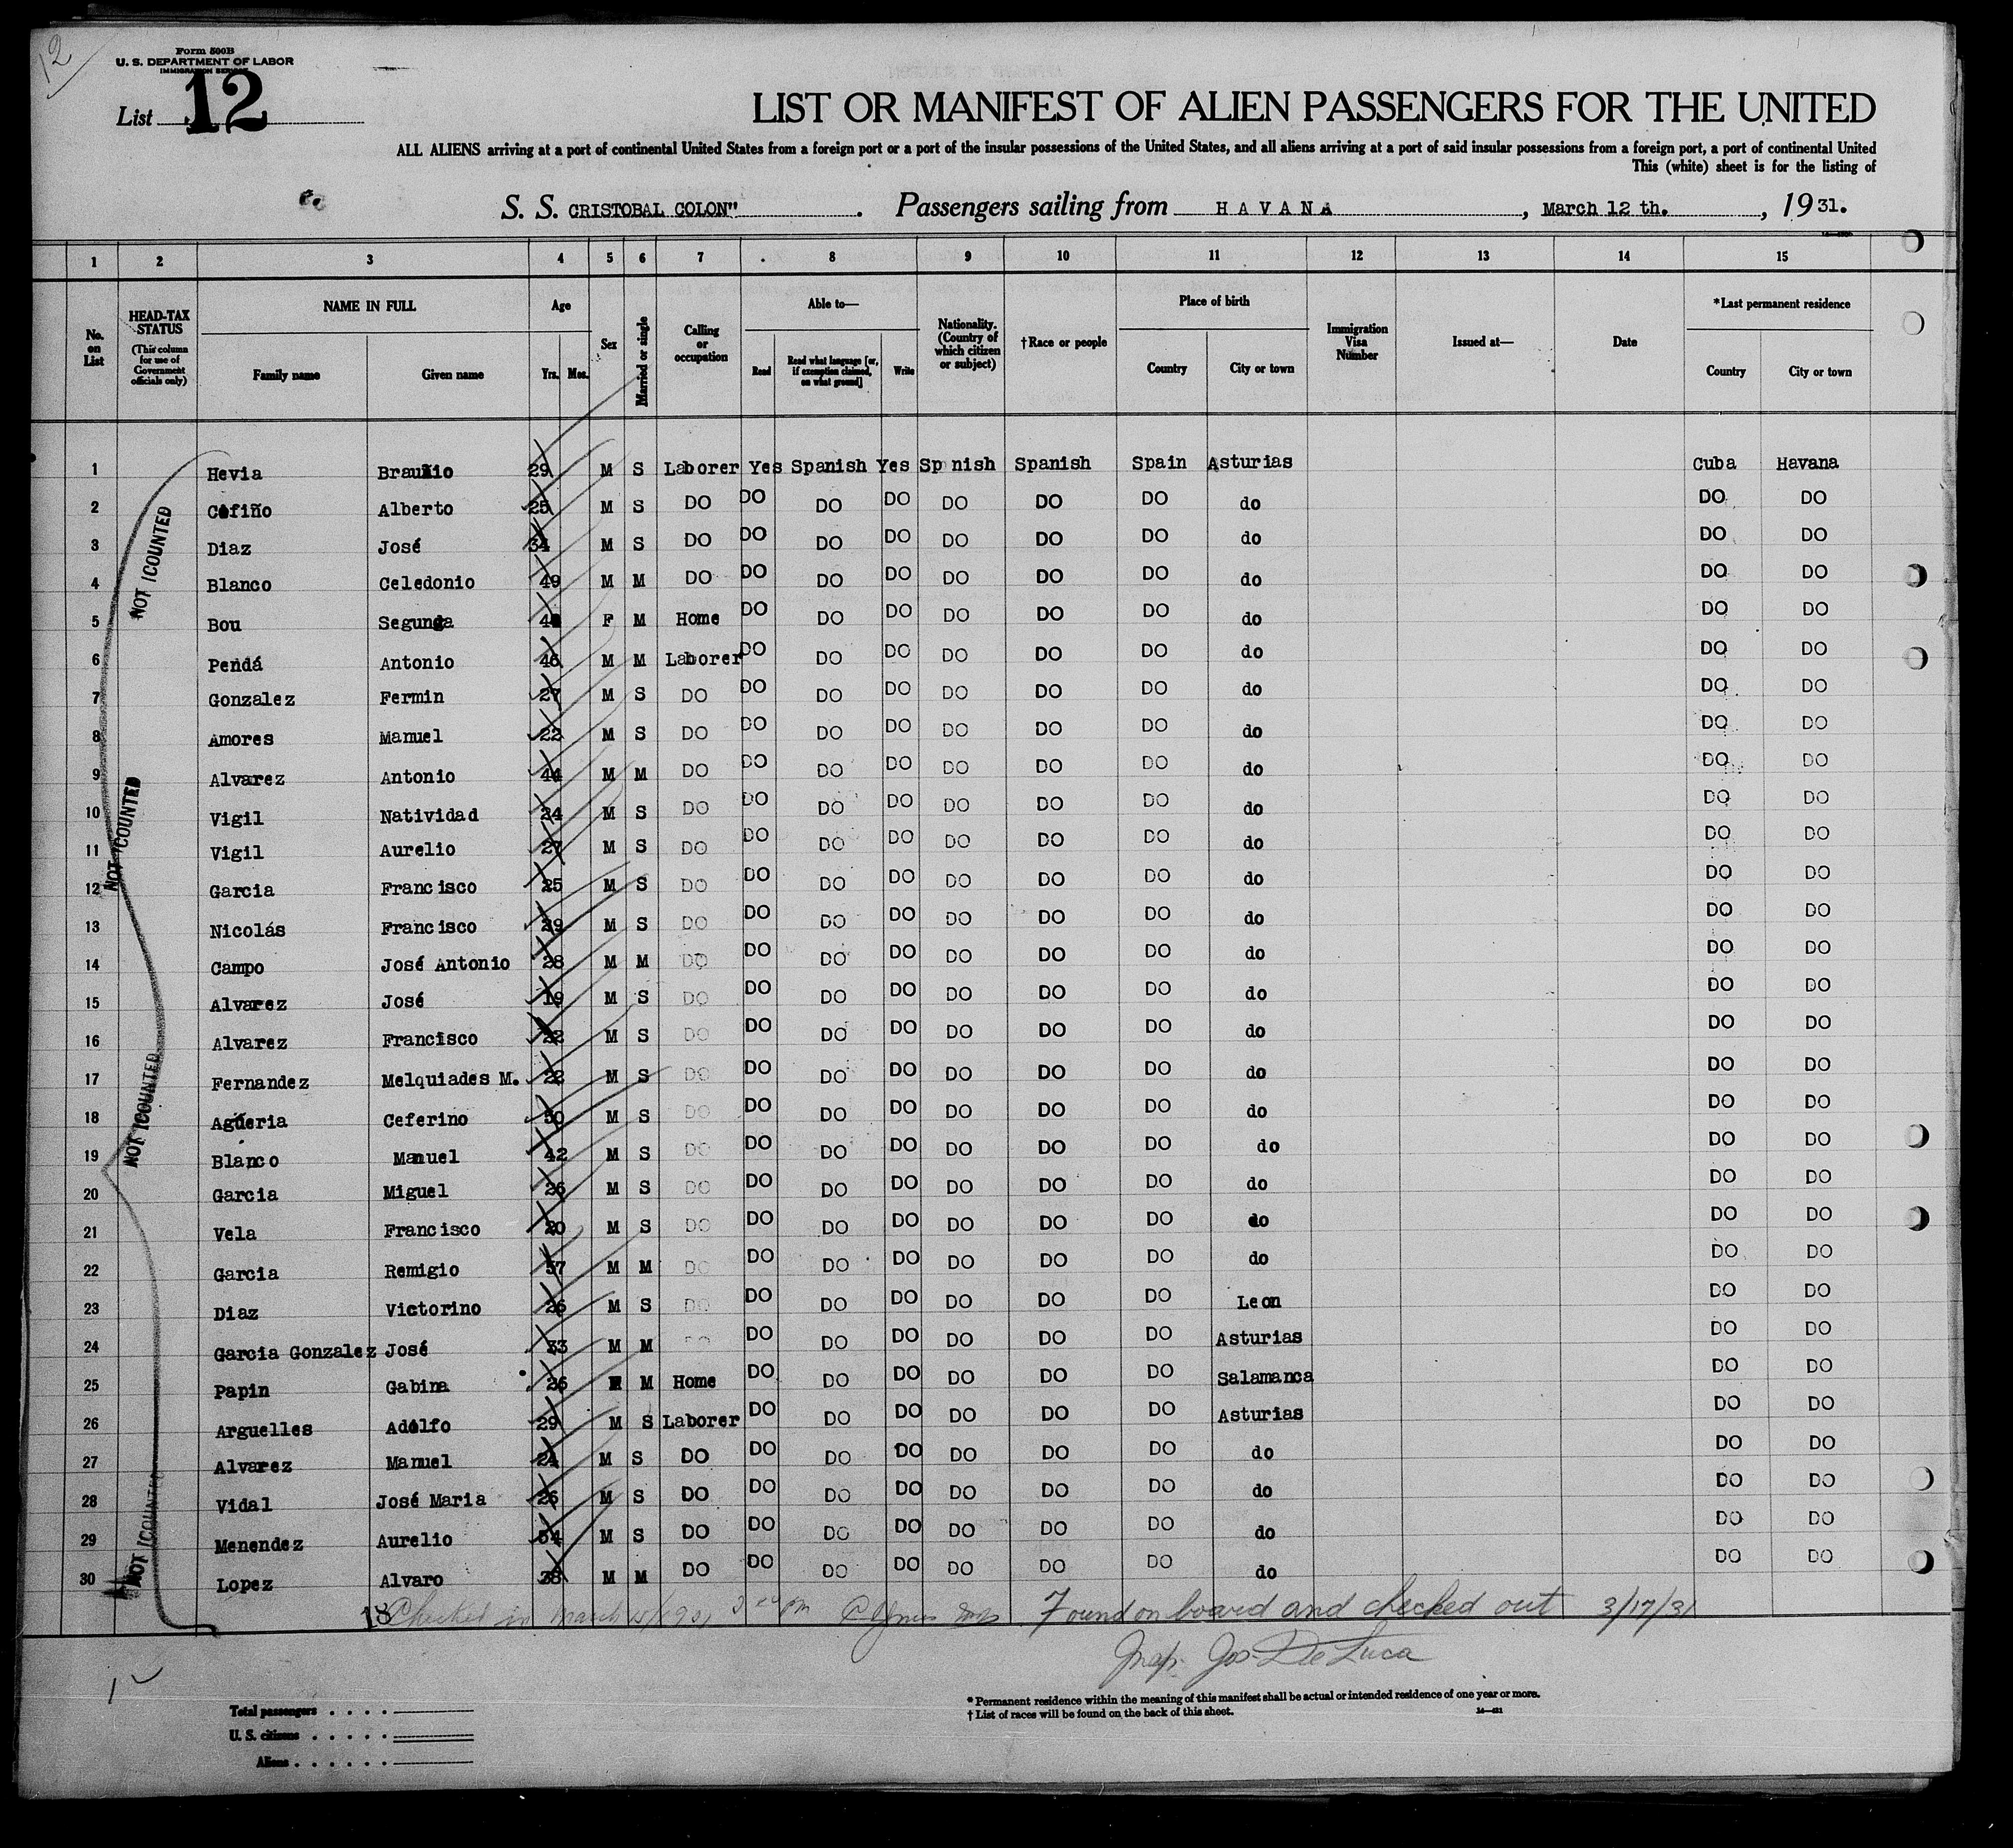 12
Form 500B
U. S. DEPARTMENT OF LABOR
IMMIGRATION SERVICE
List 12
LIST OR MANIFEST OF ALIEN PASSENGERS FOR THE UNITED
ALL ALIENS arriving at a port of continental United States from a foreign port or a port of the insular possessions of the United States, and all aliens arriving at a port of said insular possessions from a foreign port, a port of continental United
This (white) sheet is for the listing of
S. S. CRISTOBAL COLON". Passengers sailing from HAVANA, March 12 th., 1931.
1 2 3 4 5 6 7 8 9 10 11 12 13 14 15
No. on List
HEAD-TAX STATUS (This column for use of Government officials only)
NAME IN FULL Family name Given name
Age Yrs. Mos.
Sex
Married or single
Calling or occupation
Able to— Read Read what language [or, if exemption claimed, on what ground] Write
Nationality. (Country of which citizen or subject)
†Race or people
Place of birth Country City or town
Immigration Visa Number
Issued at—
Date
*Last permanent residence Country City or town
1 Hevia Braulio 29 M S Laborer Yes Spanish Yes Sp nish Spanish Spain Asturias Cuba Havana
2 Cofiño Alberto 25 M S DO DO DO DO DO DO DO do DO DO
3 Diaz José 34 M S DO DO DO DO DO DO DO do DO DO
4 Blanco Celedonio 49 M M DO DO DO DO DO DO DO do DO DO
5 Bou Segunda F M Home DO DO DO DO DO DO do DO DO
6 Pendá Antonio 46 M M Laborer DO DO DO DO DO DO do DO DO
7 Gonzalez Fermin 27 M S DO DO DO DO DO DO DO do DO DO
8 Amores Manuel 22 M S DO DO DO DO DO DO DO do DO DO
9 Alvarez Antonio 44 M M DO DO DO DO DO DO DO do DO DO
10 Vigil Natividad 24 M S DO DO DO DO DO DO DO do DO DO
11 Vigil Aurelio 27 M S DO DO DO DO DO DO DO do DO DO
12 Garcia Francisco 25 M S DO DO DO DO DO DO DO do DO DO
13 Nicolás Francisco 29 M S DO DO DO DO DO DO DO do DO DO
14 Campo José Antonio 28 M M DO DO DO DO DO DO DO do DO DO
15 Alvarez José 19 M S DO DO DO DO DO DO DO do DO DO
16 Alvarez Francisco 22 M S DO DO DO DO DO DO DO do DO DO
17 Fernandez Melquiades M. 22 M S DO DO DO DO DO DO DO do DO DO
18 Agüeria Ceferino 50 M S DO DO DO DO DO DO DO do DO DO
19 Blanco Manuel 42 M S DO DO DO DO DO DO DO do DO DO
20 Garcia Miguel 26 M S DO DO DO DO DO DO DO do DO DO
21 Vela Francisco 20 M S DO DO DO DO DO DO DO do DO DO
22 Garcia Remigio 37 M M DO DO DO DO DO DO DO do DO DO
23 Diaz Victorino 26 M S DO DO DO DO DO DO DO Leon DO DO
24 Garcia Gonzalez José 33 M M DO DO DO DO DO DO DO Asturias DO DO
25 Papin Gabina 26 F M Home DO DO DO DO DO DO Salamanca DO DO
26 Arguelles Adolfo 29 M S Laborer DO DO DO DO DO DO Asturias DO DO
27 Alvarez Manuel 24 M S DO DO DO DO DO DO DO do DO DO
28 Vidal José Maria 26 M S DO DO DO DO DO DO DO do DO DO
29 Menendez Aurelio 54 M S DO DO DO DO DO DO DO do DO DO
30 Lopez Alvaro 38 M M DO DO DO DO DO DO DO do DO DO
NOT COUNTED
NOT COUNTED
NOT COUNTED
NOT COUNTED
18 Checked in March Found on board and checked out 3/17/31
Insp. Jos. De Luca
Total passengers
U. S. citizens
Aliens
* Permanent residence within the meaning of this manifest shall be actual or intended residence of one year or more.
† List of races will be found on the back of this sheet.